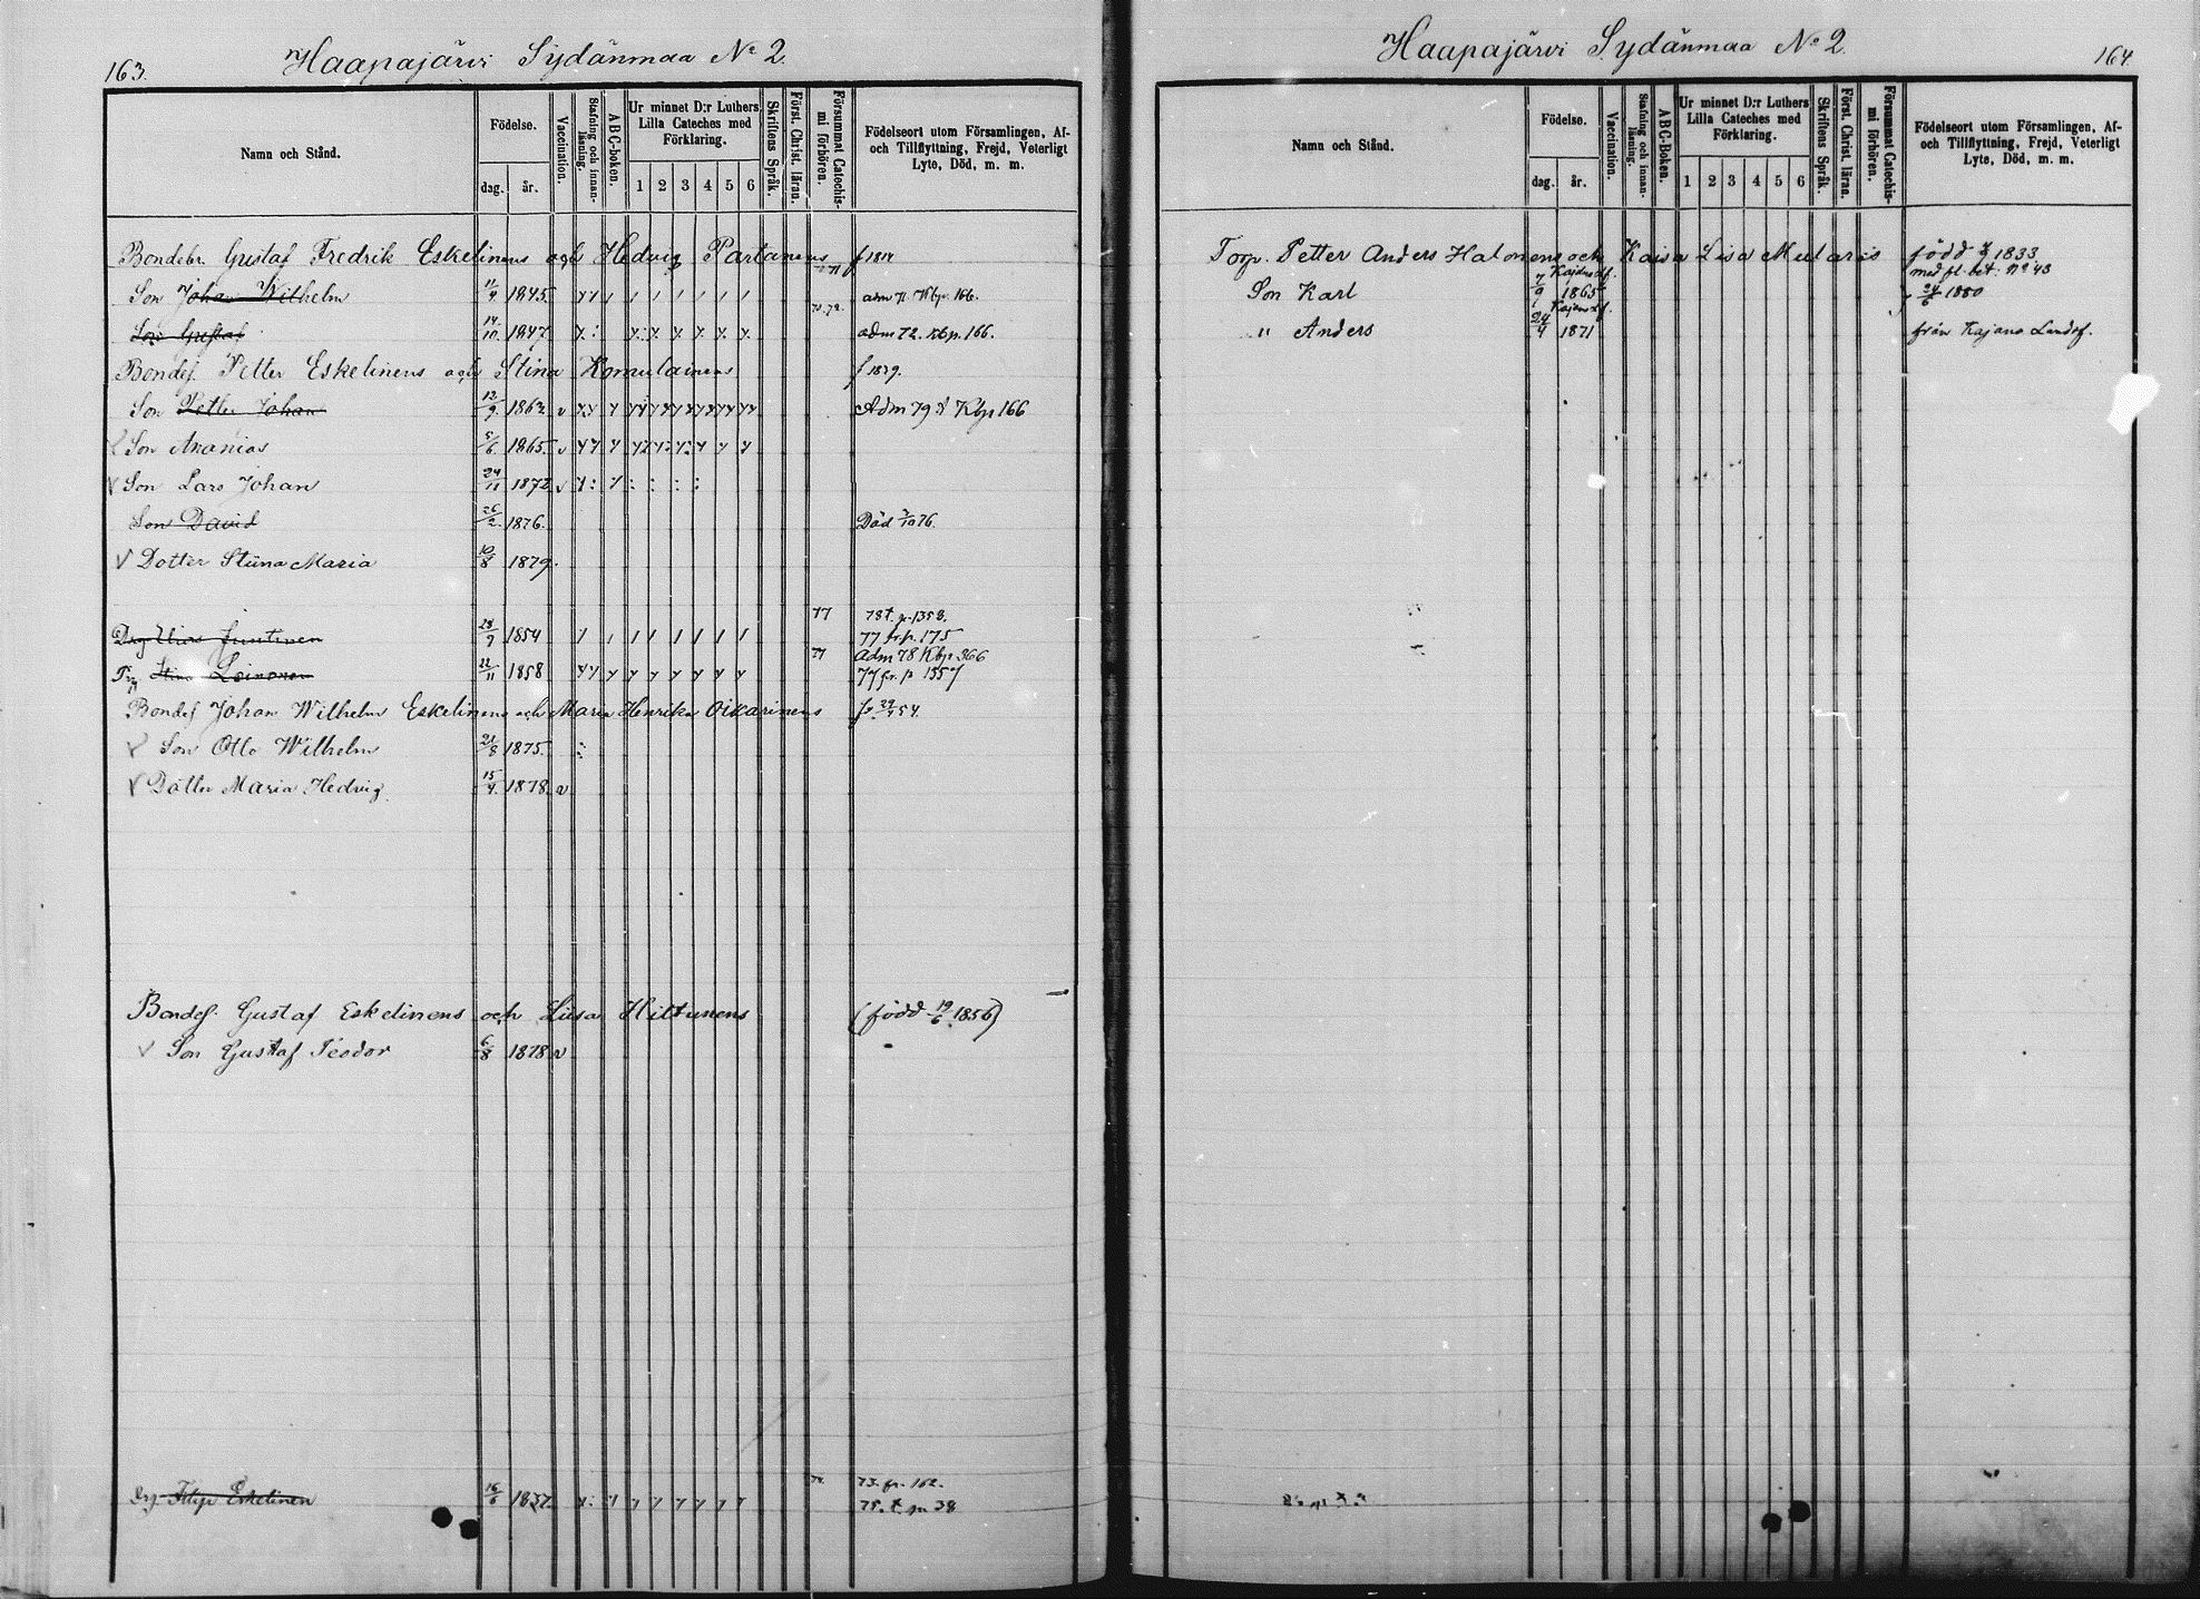 163.
Haapajärvi Sydänmaa No 2.
Namn och Stånd.
Födelse.
dag.
år.
Vaccination.
Stafning och innanläsning.
ABC-boken.
Ur minnet D:r Luthers Lilla Cateches med Förklaring.
1 2 3 4 5 6
Skriftens Språk.
Först. Christ. läran.
Försummat Catechismi förhören.
Födelseort utom Församlingen, Af- och Tillflyttning, Frejd, Veterligt Lyte, Död, m. m.
Bondebr. Gustaf Fredrik Eskelinens och Hedvig Partanens f 1814
Son Johan Wilhelm 11/4 1845. adm 71. Kbp. 166.
Son Gustaf 14/10 1847. 71.72. adm 72. Kbp. 166.
Bondef. Petter Eskelinens och Stina Komulainens f 1839.
Son Petter Johan 12/9 1862. v Adm 79 Kbp 166
Son Ananias 5/6 1865. v
Son Lars Johan 24/11 1872 v
Son David 26/2 1876. Död 76.
Dotter Stiina Maria 10/8 1879.
77 78 t. p. 1358.
Drg Elias Juntunen 28/9 1854 77 fr. p. 175
77 Adm 78 Kbp 366
Pig Stina Leinonen 22/11 1858 77 fr. p 1557
Bondef Johan Wilhelm Eskelinens och Maria Henrika Oikarinens f. 54.
Son Otto Wilhelm 21/8 1875.
Dotter Maria Hedvig. 15/4 1878. v
Bondef. Gustaf Eskelinens och Liisa Hiltunens (född 19/6 1856)
Son Gustaf Teodor 6/8 1878 v
73. fr. 162.
Drg Filip Eskelinen 16/6 1837. 78. t. pn 38
164.
Haapajärvi Sydänmaa No 2.
Namn och Stånd.
Födelse.
dag.
år.
Vaccination.
Stafning och innanläsning.
ABC-Boken.
Ur minnet D:r Luthers Lilla Cateches med Förklaring.
1 2 3 4 5 6
Skriftens Språk.
Först. Christ. läran.
Försummat Catechismi förhören.
Födelseort utom Församlingen, Af- och Tillflyttning, Frejd, Veterligt Lyte, Död, m. m.
Torp. Petter Anders Halonens och Kaisa Lisa Mularis född 1833
med fl. bet: No 43
Son Karl 7/9 1865 24/6 1880
" Anders 24/4 1871 från Kajana Landsf.